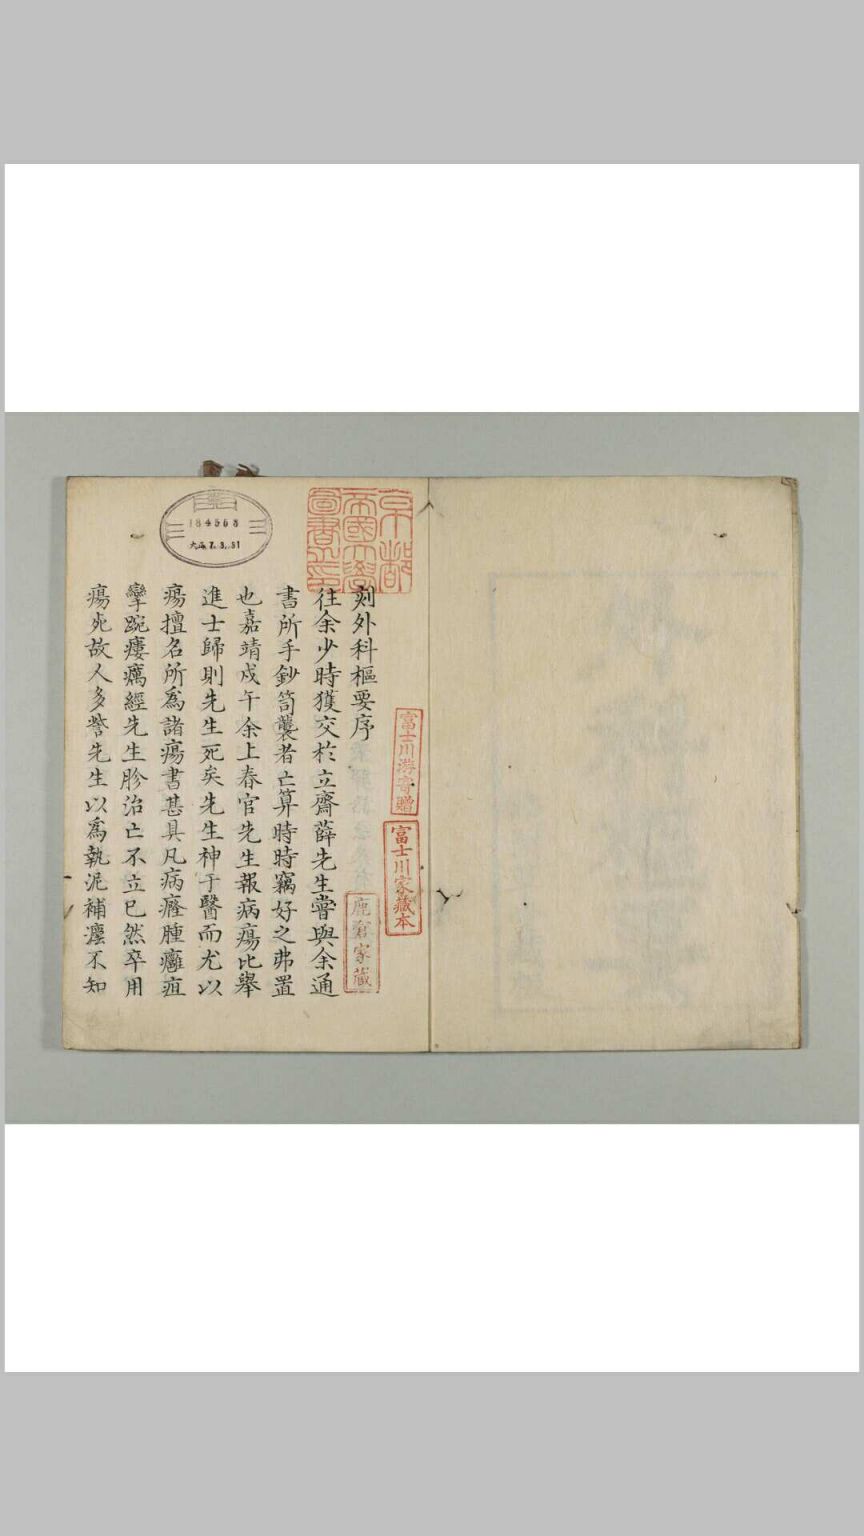 京都
帝國大學
圖書之印
184563
大正7.3.31
富士川游寄贈
富士川家藏本
家藏
刻外科樞要序
往余少時獲交於立齋薛先生嘗與余通
書所手鈔笥襲者亡算時時竊好之弗置
也嘉靖戍午余上春官先生報病瘍比舉
進士歸則先生死矣先生神于醫而尤以
瘍擅名所爲諸瘍書甚具凡病癃腫癰疽
攣踠瘻癘經先生胗治亡不立已然卒用
瘍死故人多訾先生以爲執泥補瀍不知